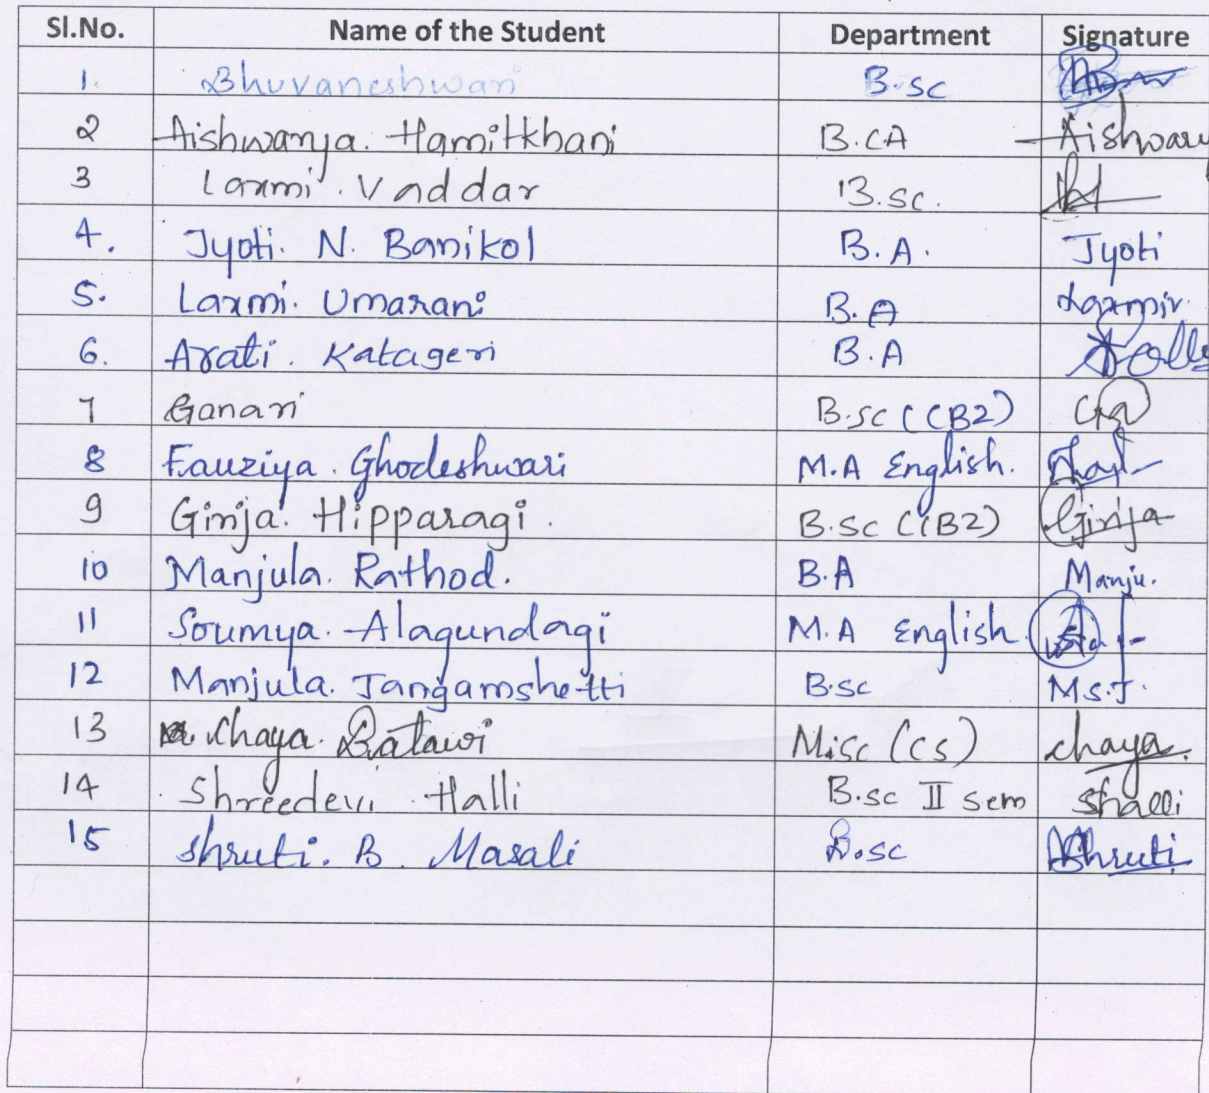 Sl.No. Name of the Student Department Signature
1. Bhuvaneshwari B.sc
2 Aishwarya. Hamitkhani B.CA Aishwary
3 Laxmi. Vaddar B.sc.
4. Jyoti. N. Banikol B.A. Jyoti
5. Laxmi. Umarani B.A Laxmiv.
6. Arati. Katageri B.A
7 Ganari B.sc (CB2)
8 Fauziya. Ghodeshwari M.A English.
9 Girija. Hipparagi. B.sc (CB2) Girija
10 Manjula. Rathod. B.A Manju.
11 Soumya. Alagundagi M.A English
12 Manjula. Jangamshetti B.sc M.S.J.
13 Chaya. Batawi M.sc (CS) chaya.
14 Shreedevi Halli B.sc II sem Shalli
15 Shruti. B. Masali B.sc Shruti